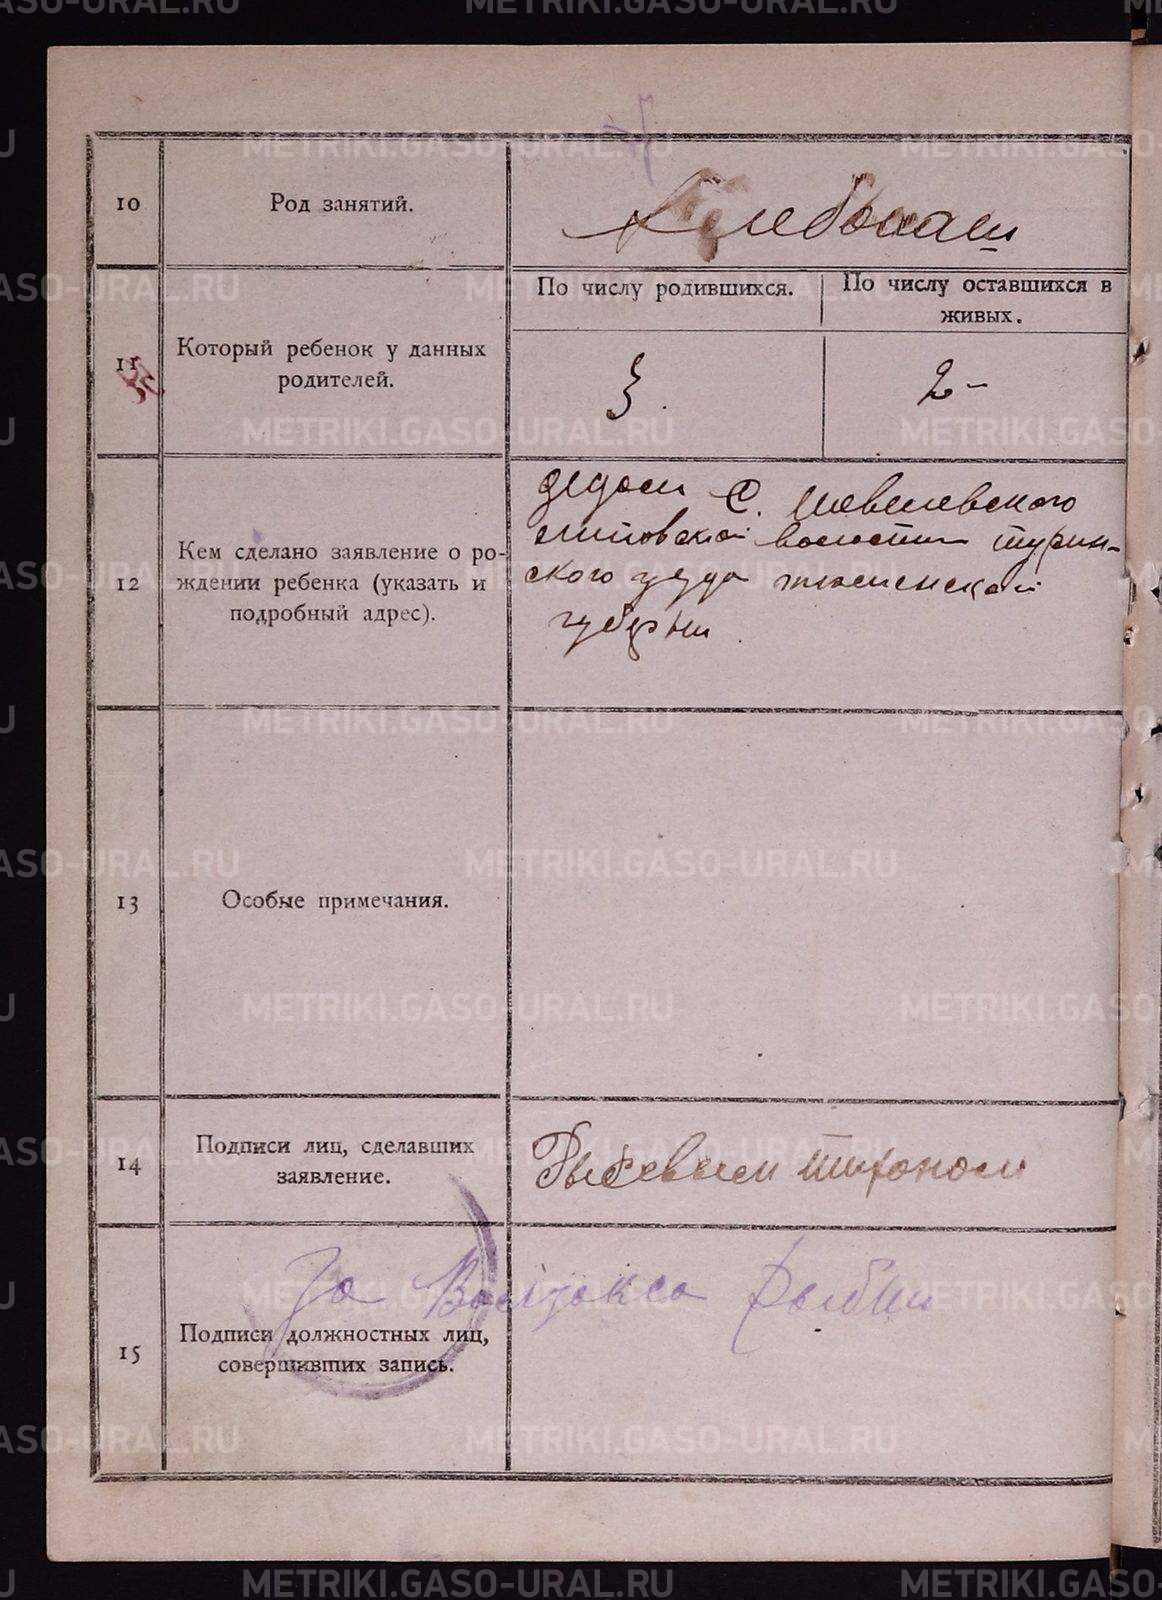 10
Род занятий.
Хлебопаш
11
Который ребенок у данных
родителей.
По числу родившихся.
По числу оставшихся в
живых.
3.
2-
12
Кем сделано заявление о ро-
ждении ребенка (указать и
подробный адрес).
дедом С. Шевелевского
волости турин-
ского уезда тюменской
губерни
13
Особые примечания.
14
Подписи лиц, сделавших
заявление.
тихоном
15
Подписи должностных лиц,
совершивших запись.
За
METRIKI.GASO-URAL.RU